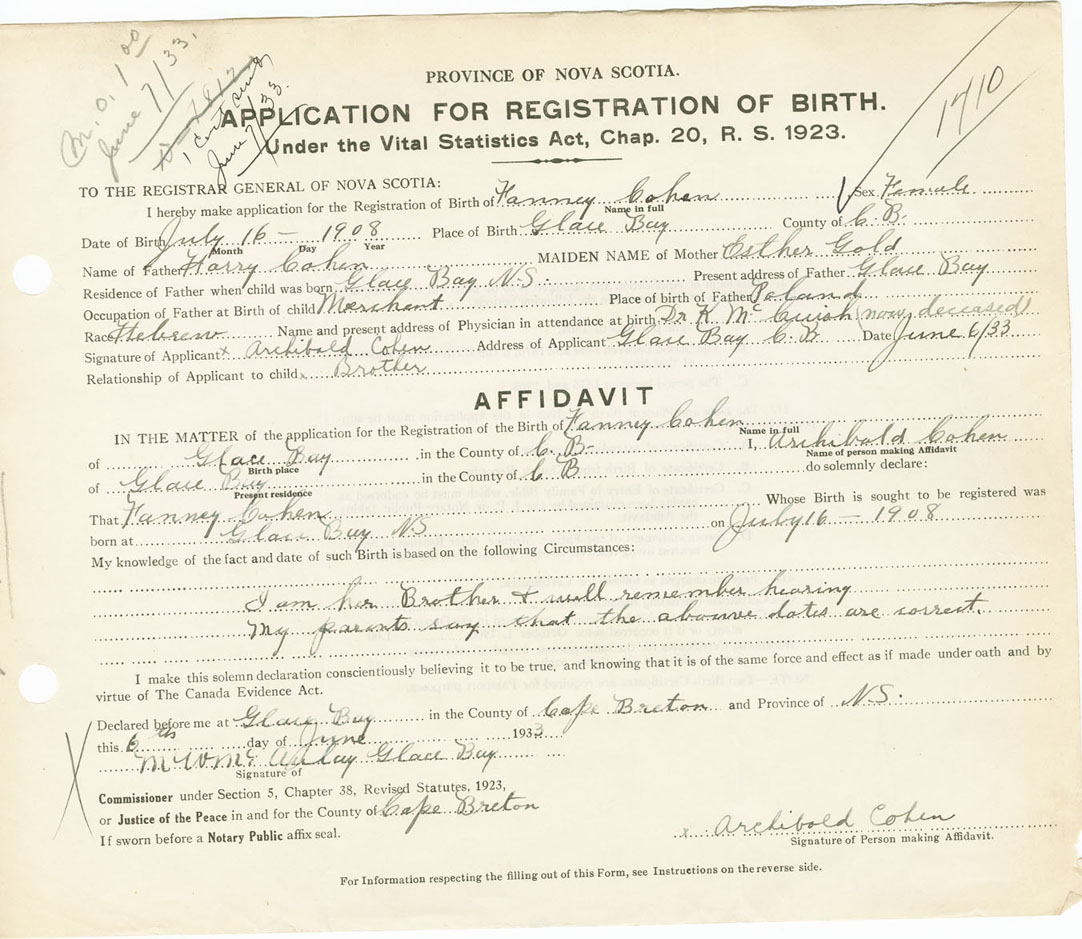 M.O. 1 00
June 7/33.
June 7/33.
1710
PROVINCE OF NOVA SCOTIA.
APPLICATION FOR REGISTRATION OF BIRTH.
Under the Vital Statistics Act, Chap. 20, R. S. 1923.
TO THE REGISTRAR GENERAL OF NOVA SCOTIA:
I hereby make application for the Registration of Birth of Fanney Cohen Sex Female
Name in full
Date of Birth July 16 - 1908 Place of Birth Glace Bay County of C. B.
Month Day Year
Name of Father Harry Cohen MAIDEN NAME of Mother Esther Gold
Residence of Father when child was born Glace Bay N.S. Present address of Father Glace Bay
Occupation of Father at Birth of child Merchant Place of birth of Father Poland
Race Hebrew Name and present address of Physician in attendance at birth Dr. K. (now deceased)
Signature of Applicant x Archibald Cohen Address of Applicant Glace Bay C. B Date June 6/33
Relationship of Applicant to child x Brother
AFFIDAVIT
IN THE MATTER of the application for the Registration of the Birth of Fanney Cohen
Name in full
of Glace Bay in the County of C. B. I, Archibald Cohen
Birth place Name of person making Affidavit
of Glace Bay in the County of C B do solemnly declare:
Present residence
That Fanney Cohen Whose Birth is sought to be registered was
born at Glace Bay N S on July 16 - 1908
My knowledge of the fact and date of such Birth is based on the following Circumstances:
I am her Brother & well remember hearing
my parents say that the above dates are correct.
I make this solemn declaration conscientiously believing it to be true, and knowing that it is of the same force and effect as if made under oath and by
virtue of The Canada Evidence Act.
Declared before me at Glace Bay in the County of Cape Breton and Province of N.S.
this 6th day of June 1933
McAulay Glace Bay
Signature of
Commissioner under Section 5, Chapter 38, Revised Statutes, 1923,
or Justice of the Peace in and for the County of Cape Breton
If sworn before a Notary Public affix seal.
x Archibald Cohen
Signature of Person making Affidavit.
For Information respecting the filling out of this Form, see Instructions on the reverse side.